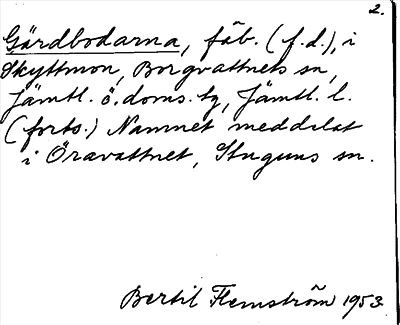 2.
Gärdbodarna, fäb. (f.d.), i
Skyttmon, Borgvattnets sn,
Jämtl. ö. doms. tg, Jämtl. l.
(forts.) Namnet meddelat
i Öravattnet, Stuguns sn.
Bertil Flemström 1953